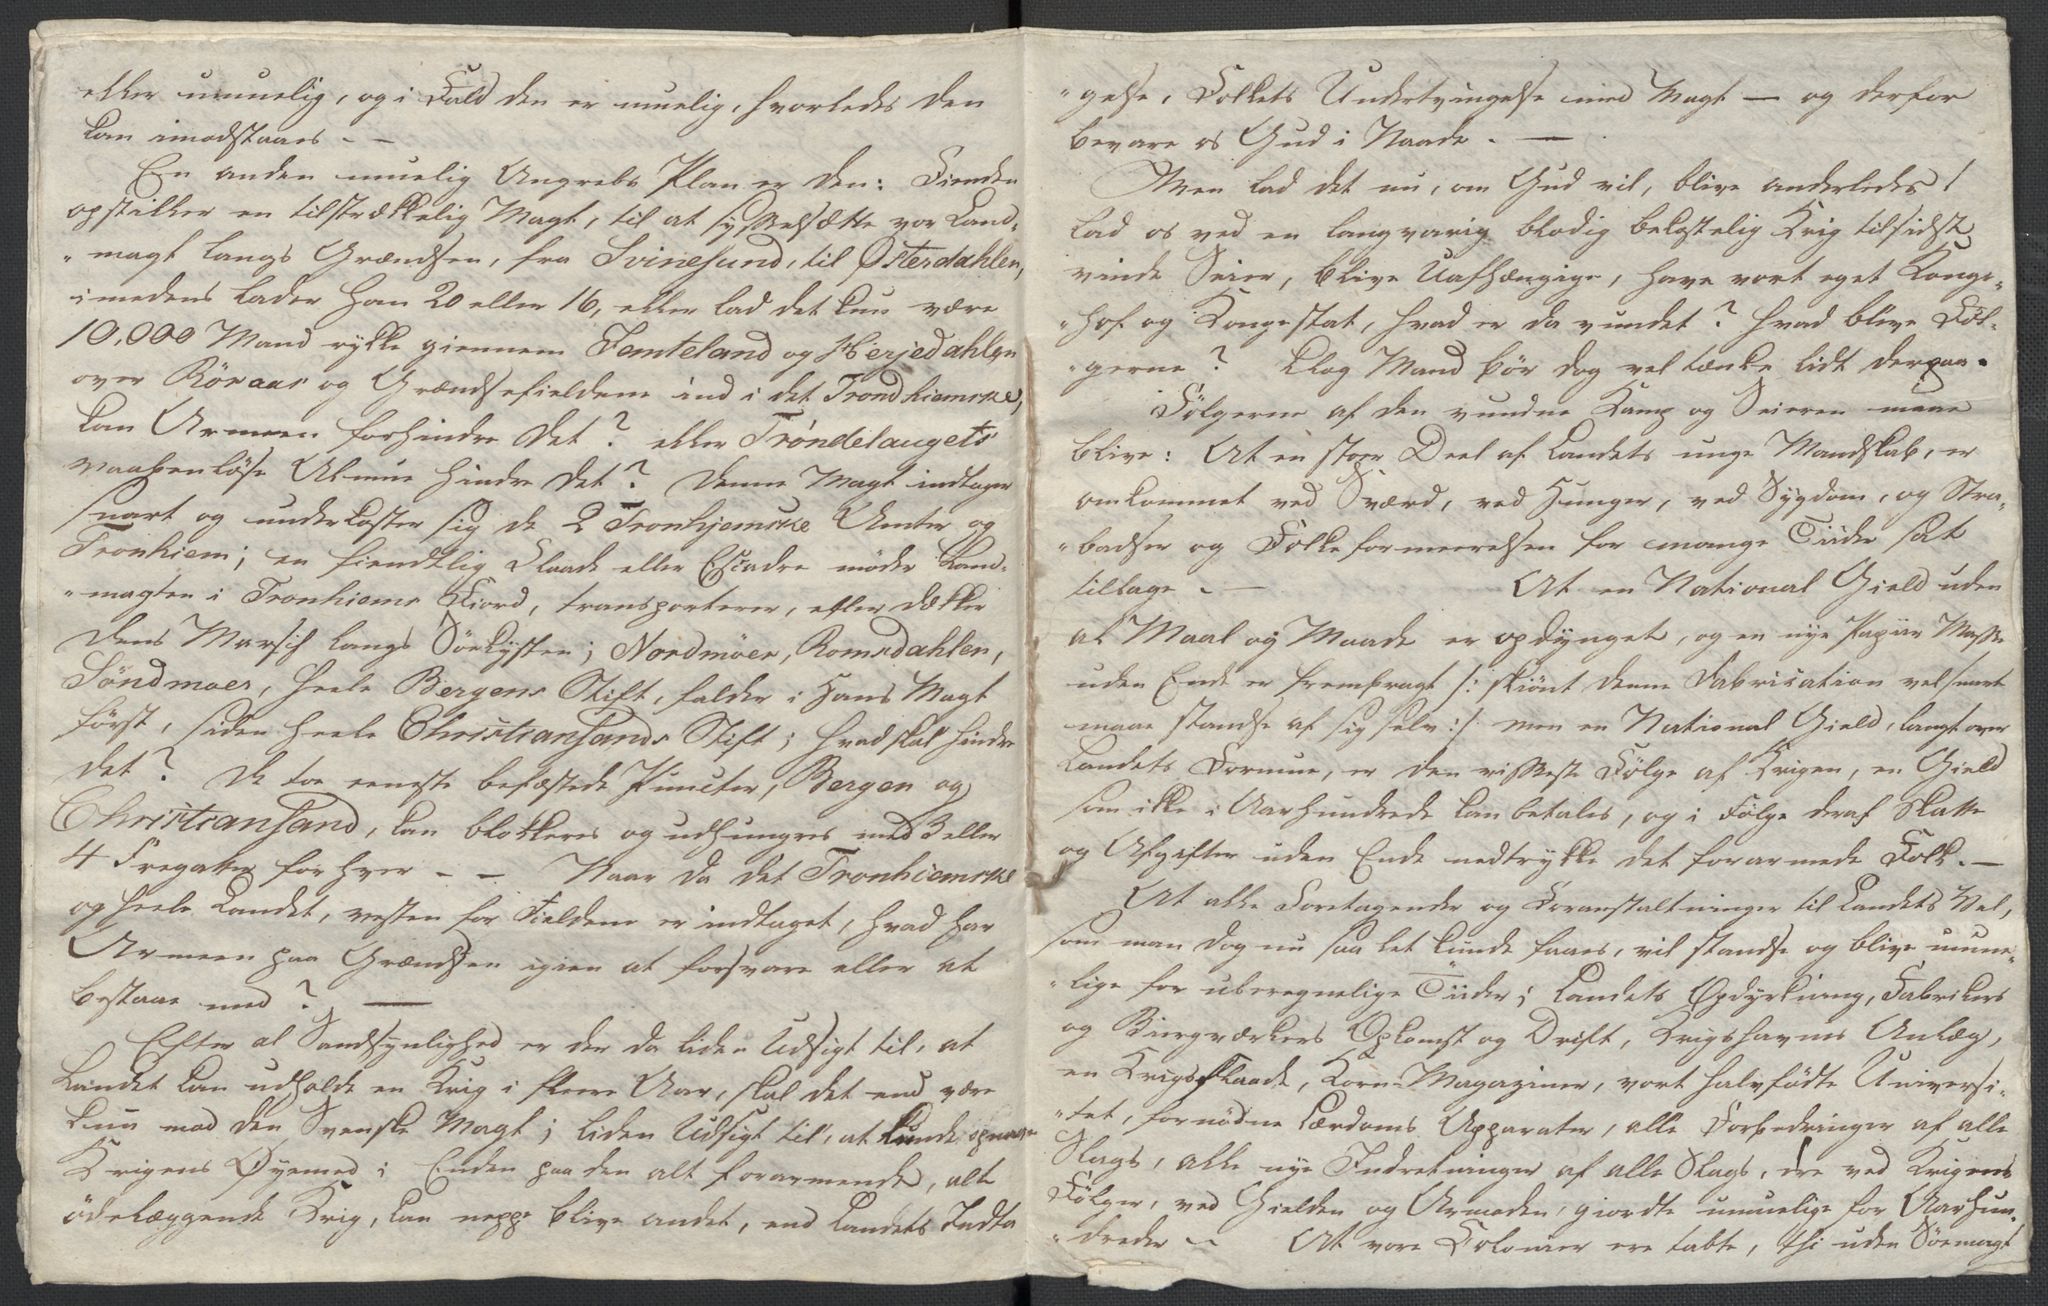 eller umuelig, og i Fald den er muelig, hvorledes den
kan imodstaaes - -
En anden muelig Angrebs Plan er den: Fienden
opstiller en tilstrækkelig Magt, til at sysselsætte vor Land-
"magt langs Grændsen, fra Svinesund, til Østerdahlen,
imedens lader han 20 eller 16, eller lad det kun være
10,000 Mand rykke giennem Jemteland og Herjedahlen
over Röraas og Grændsefieldene ind i det Trondhiemske,
kan Armeen forhindre det? eller Trøndelaugets
vaabenløse Almue hindre det? Denne Magt indtager
snart og underkaster sig de 2 Tronhjemske Amter og
Tronhiem; en fiendtlig Flaade eller Escadre møder Land-
"magten i Tronhiems Fiord, transporterer, eller dækker
dens Marsch langs Söekysten; Nordmöer, Romsdahlen,
Söndmoer, heele Bergens Stift, falder i Hans Magt
först, siden heele Christiansands Stift; hvad skal hindre
det? De toe eeneste befæstede Puncter, Bergen og
Christiansand, kan blokkeres og udhungres med 3 eller
4 Fregatter for hver - - Naar da det Tronhiemske
og heele Landet, vesten for Fieldene er indtaget, hvad har
Armeen paa Grændsen igien at forsvare eller at
bestaae med? —
Efter al Sandsynlighed er der da liden Udsigt til, at
Landet kan udholde en Krig i fleere Aar, skal det end være
kun mod den Svenske Magt; liden Udsigt til, at kunde opnaae
Krigens Øyemed i Enden paa den alt forarmende, alt
ödelæggende Krig, kan neppe blive andet, end Landets Indta
"gelse, Folkets Undertvingelse med Magt — og derfor
bevare os Gud i Naade. —
Men lad det nu, om Gud vil, blive anderledes!
lad os ved en langvarig blodig bekostelig Krig tilsidst
vinde Seier, blive Uafhængige, have vort eget Konge-
"hof og Kongestat, hvad er da vundet? hvad blive Föl-
"gerne? Klog Mand bör dog vel tænke lidt derpaa.
Fölgerne af den vundne Kamp og Seieren maae
blive: At en stoer Deel af Landets unge Mandskab, er
omkommet ved Sværd, ved Hunger, ved Sygdom, og Stra-
"badser og Folkeformeerelsen for mange Tiider sat
tilbage. — At en National Gield uden
al Maal og Maade er opdynget, og en nye Papiir Masse
uden Ende er frembragt /: skiönt denne Fabrication vel snart
maae standse af sig selv :/ men en National Gield, langt over
Landets Formue, er den visseste Fölge af Krigen, en Gield
som ikke i Aarhundrede kan betales, og i Fölge deraf Skatte
og Afgifter uden Ende nedtrykke det forarmede Folk. —
At alle Foretagender og Foranstaltninger til Landets Vel,
som man dog nu saa let kunde faaes, vil standse og blive umue-
"lige for uberegnelige Tiider; Landets Opdyrkning, Fabrikers
og Biergværkers Opkomst og Drift, Krigshavnes Anlæg,
en Krigsflaade, Korn-Magaziner, vort halvfödte Universi-
"tet, fornödne Lærdoms Apparater, alle Forbedringer af alle
Slags, alle nye Indretninger af alle Slags, ere ved Krigens
Fölger, ved Gielden og Armoden, giordte umuelige for Aarhun-
"dreder — At vore Kolonier ere tabte, thi uden Söemagt